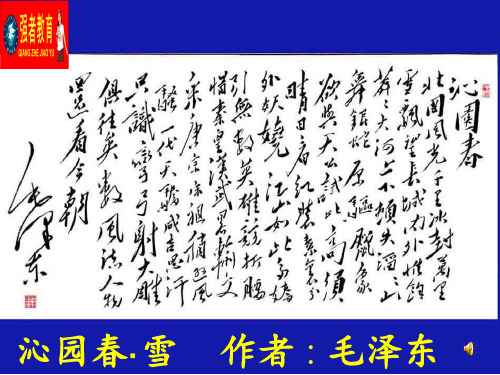 强者教育
QIANG ZHE JIAO YU
沁園春
北國風光千里冰封萬里
雪飄望長城内外惟餘
莽〻大河上下頓失滔〻山
舞銀蛇原驅臘象
欲與天公試比高須
晴日看紅裝素裹分
外妖嬈江山如此多嬌
引無數英雄競折腰
惜秦皇漢武略輸文
采唐宗宋祖稍遜風
騷一代天驕成吉思汗
只識彎弓射大雕
俱往矣數風流人物
還看今朝
毛澤東
沁园春·雪 作者：毛泽东